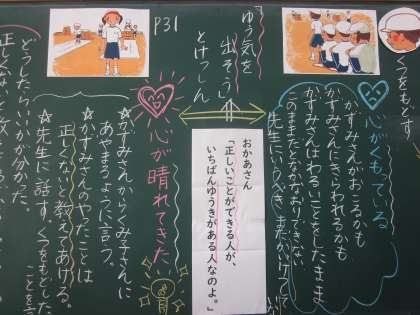 くつをもどす
心がくもっている
かすみさんがおこるかも
かすみさんにきらわれるかも
かすみさんはわるいことをしたまま
このままだとなかなおりできない
先生にいうべき
おかあさん
「正しいことができる人が、
いちばんゆうきがある人なのよ。」
ゆう気を
出そう
とけっしん
P31
心が晴れてきた
☆かすみさんからくみ子さんに
あやまるように言う。
☆かすみさんのやったことは
正しくないと教えてあげる。
☆先生に話す。くつをもどした
ことを
どうしたらいいかが分かった。
正しくないと教